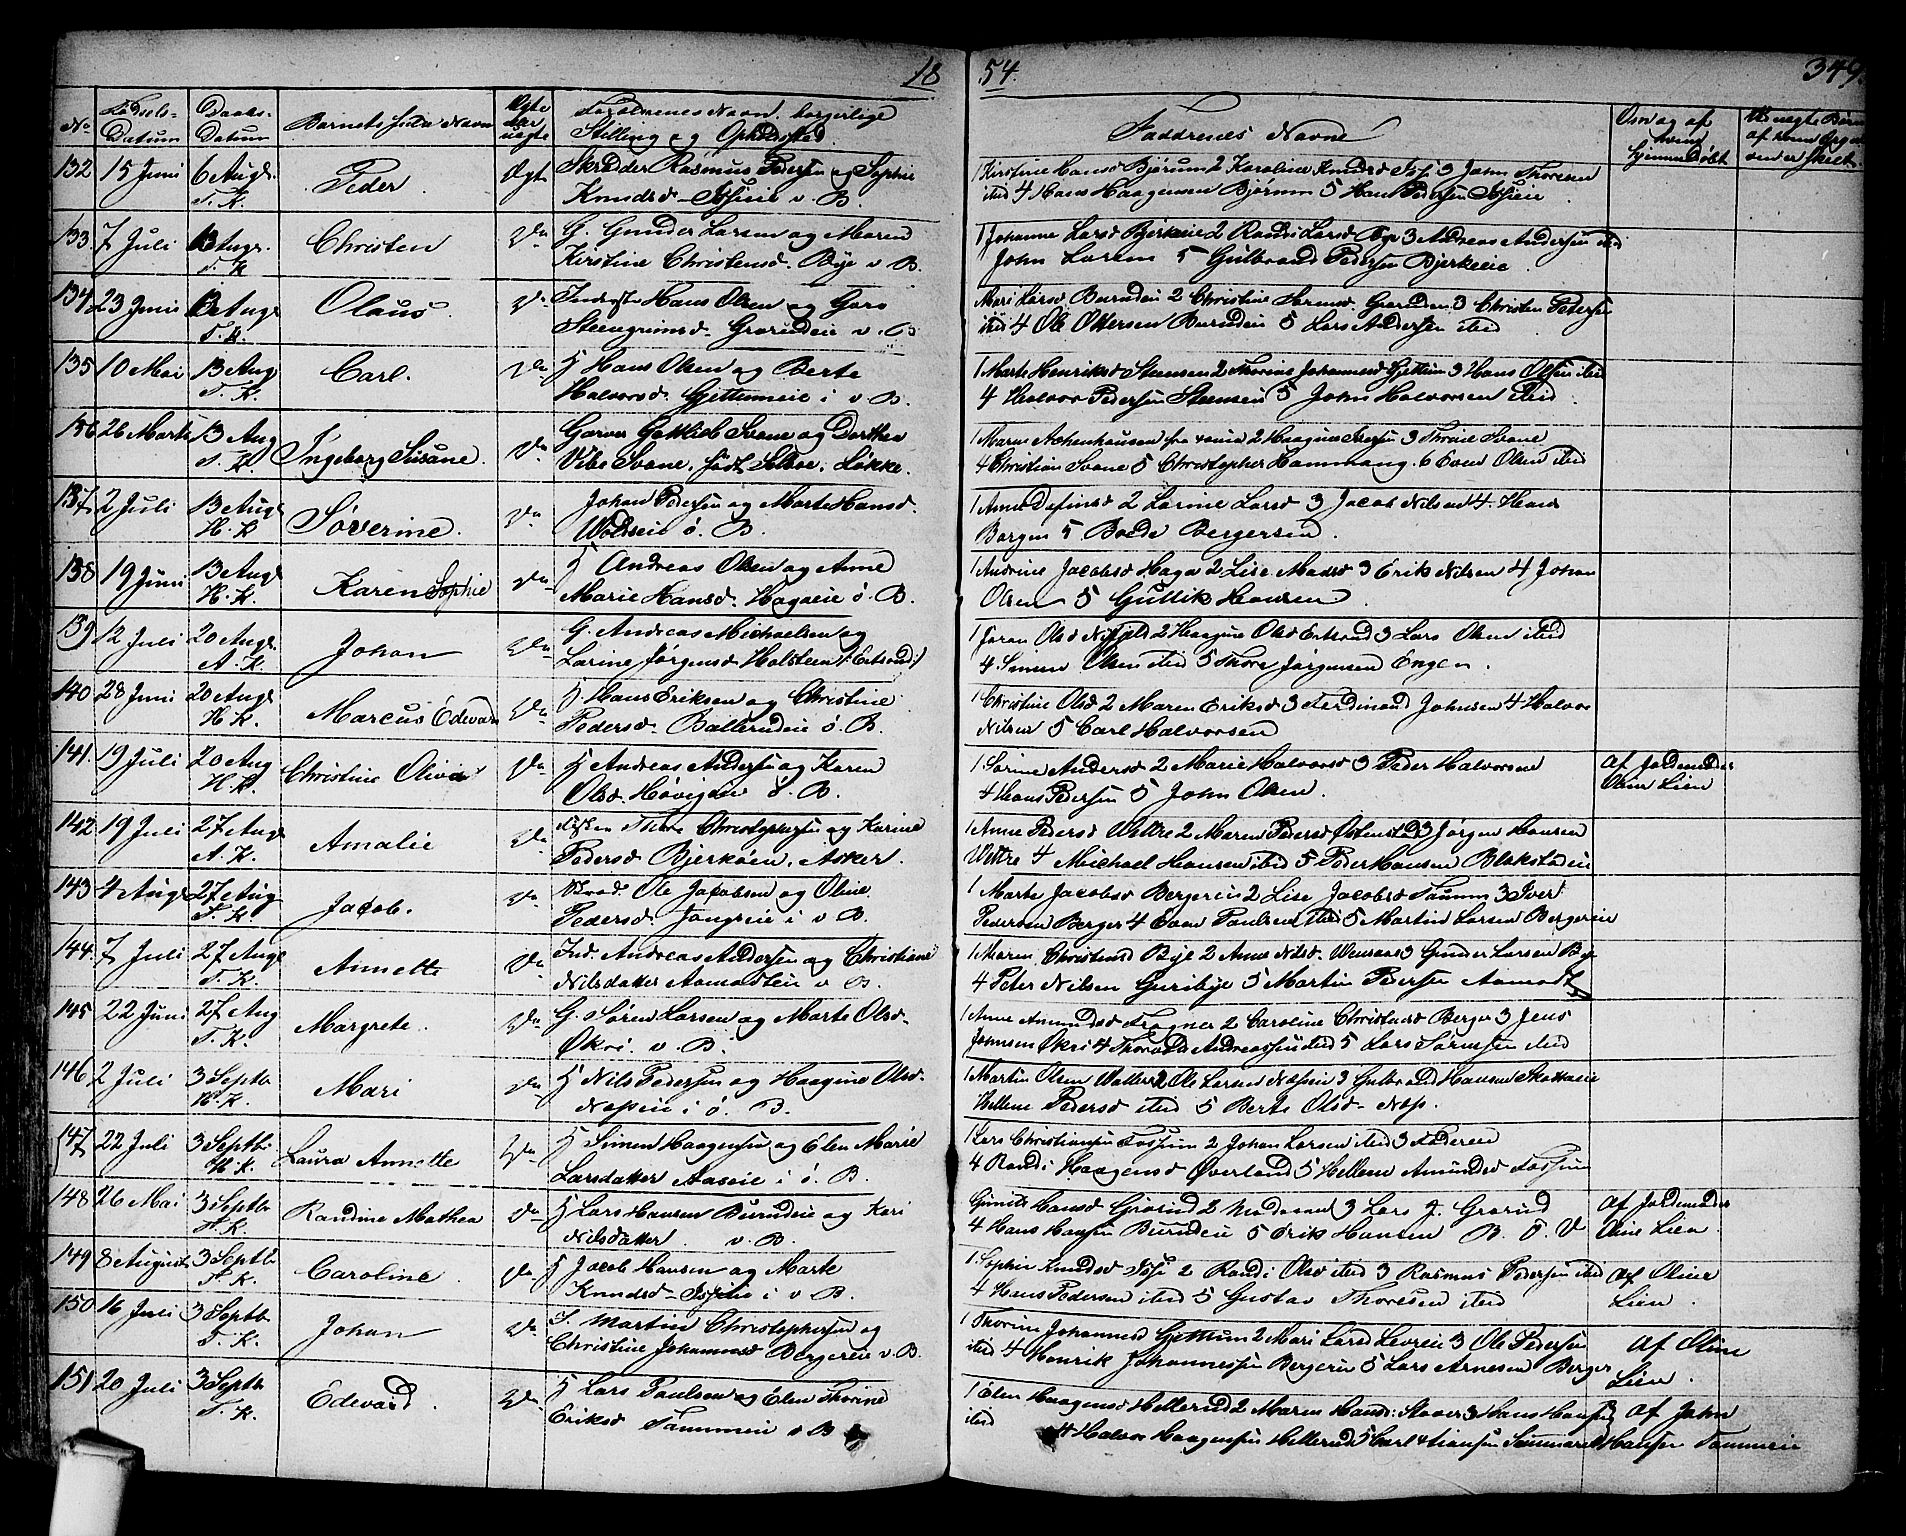 18
No
Fødsels-
Datum
Daabs-
Datum
Barnets fulde Navn
Ægte
eller
uægte
Forældrenes Navn, borgerlige
Stilling og Opholdsted.
132 15 Juni 6 Augs Peder. Ægt Skrædder Rasmus Pedersen og Sophie
T. K. Knudsd Josseie v. B.
133. 7 Juli 13 Augs. Christen Do G. Gunder Larsen og Maren
T. K. Kirstine Christensd. Bye v B.
134 23 Juni 13 Augs Olaus. Do Inderst Hans Olsen og Goro
T. K. Steengrimsd. Grorudeie v. B
135 10 Mai 13 Aug Carl. Do H Hans Olsen og Berte
T. K. Halvorsd. Gjettumeie i v B.
136 26 Marts 13 Aug Ingeborg Susane. Do Garver Gottlieb Svane og Dorthea
T. K. Vibe Svane, født Løkke.
137. 2 Juli 13 Augs Søverine. Do Johan Pedersen og Marte Hansd.
H. K. ø. B.
138 19 Juni 13 Augs Karen Sophie Do H Andreas Olsen og Anne
H. K. Marie Hansd. Hagaeie ø. B.
139 12 Juli 20 Augs Johan Do G. Andreas Michaelsen og
A. K. Larine Jørgensd Holsteen
140 28 Juni 20 Augs Marcus Edevard Do H Hans Eriksen og Christine
H. K. Pedersd. Ballerudeie ø B.
141. 19 Juli 20 Aug Christine Olivia Do H Andreas Andersen og Karen
H. K. Olsd. Høvigeie ø. B.
142 19 Juli 27 Augs Amalie Do Thore Christophersen og Karine
A. K. Pedersd Bjerkøen. Asker.
143 4 Augs 27 Aug Jacob. Do Ole Jacobsen og Oline
T. K. Pedersd. i v B.
144. 7 Juli 27 Augs Annette Do Ind. Andreas Andersen og Christiane
T. K. Nilsdatter Aamodteie v B.
145 22 Juni 27 Aug Margrete. Do G. Søren Larsen og Marte Olsd.
T. K. Økri. v. B.
146 2 Juli 3 Septb Mari Do H Nils Pedersen og Haagine Olsd.
H. K. Næseie i ø. B.
147 22 Juli 3 Septb Laura Annette Do H Simen Haagensen og Elen Marie
H. K. Larsdatter Aaseie i ø. B.
148 26 Mai 3 Septb Randine Mathea Do H Lars Hansen Burudeie og Kari
H. K. Nilsdatter. v. B.
149 8 August 3 Septb Caroline. Do H Jacob Hansen og Marte
T. K. Knudsd i v B.
150 16 Juli 3 Septb Johan Do I. Martin Christophersen og
T. K. Christine Johannesd Bergereie v. B.
151 20 Juli 3 Septb Edevard. Do H Lars Paulsen og Elen Thorine
T. K. Eriksd Tømmeeie v B
54.
349.
Faddrenes Navne
Om og af
hvem
hjemmedøbt
1 Kirstine Hansd Bjørum 2 Karoline Knudsd 3 John Thoresen
ibid 4 Hans Haagensen Bjørum 5 Hans Pedersen
1 Johanne Larsd Bjerkeeie 2 Randi Larsd Bye 3 Andreas Andersen ibid
John Larsen 5 Gulbrand Pedersen Bjerkeeie.
Mari Larsd Burudeie 2 Christine 3 Christen Petersen
ibid 4 Ole Ottersen Burudeie 5 Lars Andersen ibid
1 Marte Henriksd Steensen 2 Thorine Johannesd Gjettum 3 Hans Olsen ibid
4 Halvor Pedersen 5 John Halvorsen ibid.
1 Maren 2 3 Thrine Svane
4 Christian Svane 5 Christopher Hammang. 6 Even Olsen ibid
1 Anne 2 Larine Larsd 3 Jacob Nilsen 4. Hans
Borgen 5 Boede Bergersen.
1 Andrine Jacobsd Haga 2 Lise Madsd 3 Erik Nilsen 4 Johan
Olsen 5 Gullik Hansen.
1 Joran Olsd 2 Haagine Olsd 3 Lars Olsen ibid
4 Simen Olsen ibid 5 Thore Jørgensen Engen.
1 Christine Olsd 2 Maren Eriksd 3 Ferdinand Johnsen 4 Halvor
Nilsen 5 Carl Halvorsen
1. Sørine Andersd 2 Marie Halvorsd 3 Peder Halvorsen
4 Hans Pedersen 5 John Olsen.
af Jordemoder
Oline Lien
1 Anne Pedersd Vettre 2 Maren Pedersd Østenstad 3 Jørgen Hansen
Vettre 4 Michael Hansen ibid 5 Peder Hansen Blakstadeie
1 Marte Jacobsd Bergereie 2 Lise Jacobsd 3 Iver
Pedersen Berger 4 Even Paulsen ibid 5 Martin Larsen Bergereie
1 Maren Christensd Bye 2 Anne Nilsd. 3 Gunder Larsen Bye
4 Peter Nilsen Guribye 5 Martin Pedersen Aamodt
1 Anne Amundsd Fragner 2 Caroline Christensd Berger 3 Jens
Johnsen Økri 4 Thorvald Andreassen ibid 5 Lars Sørensen ibid
1 Martin Olsen 2 Ole Larsen Næseie 3 Gulbrand Hansen
Hellene Pedersd ibid 5 Berte Olsd. Næs.
1 Lars Christiansen Fossum 2 Johan Larsen ibid 3 Faderen
4 Randi Haagensd Øverland 5 Hellene Amundsd Fossum
Hansd Grorud 2 Moderen 3 Lars J. Grorud
4 Hans Hansen Burudeie 5 Erik Hansen B. ø. V
af Jordemoder
Oline Lien
1 Sophie Knudsd 2 Randi Olsd ibid 3 Rasmus Pedersen ibid
4 Hans Pedersen ibid 5 Gustav Thoresen ibid
af Oline
Lien.
1 Thorine Johannesd Gjettum 2 Mari Larsd 3 Ole Pedersen
ibid 4 Henrik Johannessen Bergereie 5 Lars Arnesen Berger
af Oline
Lien.
1 Elen Haagensd Hellerud 2 Maren Hansd: 3 Hans Hansen
ibid 4 Halvor Haagensen Hellerud 5 Carl
af John
Hansen Tømmeeie